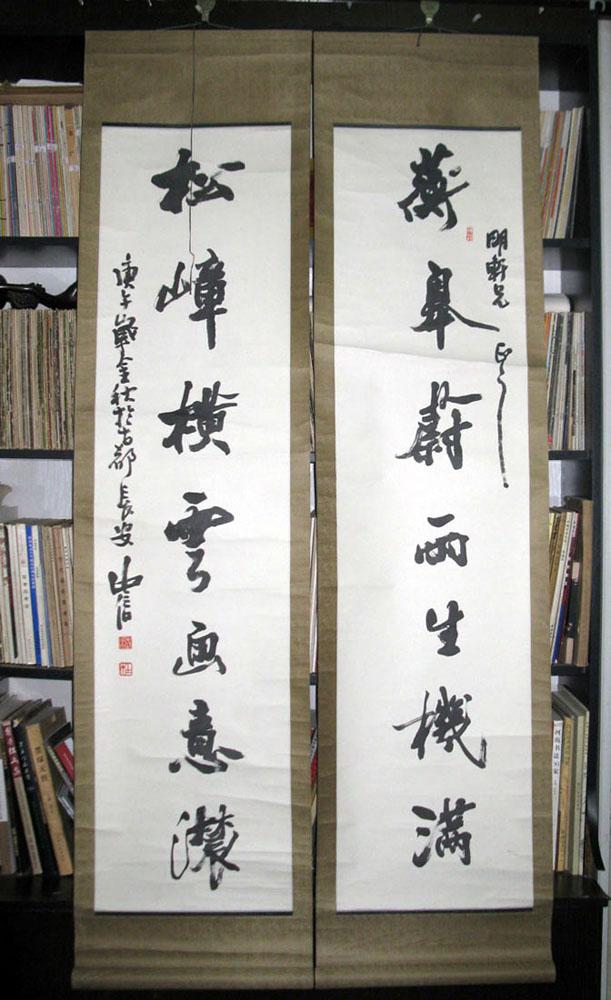 明軒兄 正之
蘅皋蔚雨生機滿
松嶂橫雲画意濃
庚午歲金秋於古都長安